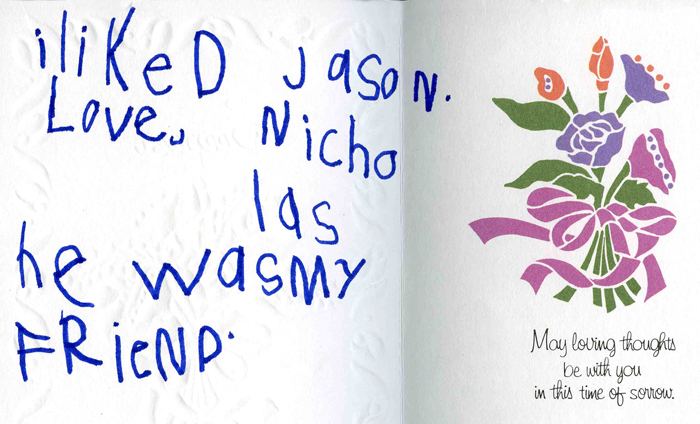 iliKeD Jason.
Love, Nicho
las
he wasMy
FRieND.
May loving thoughts
be with you
in this time of sorrow.